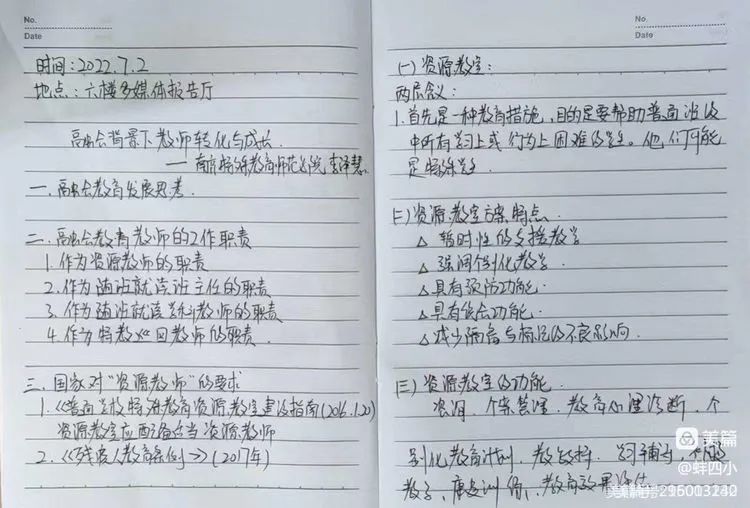 No.
Date
时间:2022.7.2
地点:六楼多媒体报告厅
融合背景下教师转化与成长
——南京特殊教育师范学院 李泽慧
一、融合教育发展思考
二、融合教育教师的工作职责
1.作为资源教师的职责
2.作为随班就读班主任的职责
3、作为随班就读学科教师的职责
4、作为特教巡回教师的职责
三、国家对“资源教师”的要求
1.《普通学校特殊教育资源教室建设指南》(2016.1.20)
资源教室应配备适当资源教师
2.《残疾人教育条例》(2017年)
No.
Date
(一)资源教室:
两层含义:
1.首先是一种教育措施,目的是要帮助普通班级
中所有学习上或行为上困难的学生。他们可能
是特殊学生
(二)资源教室方案特点
△ 暂时性的支援教学
△ 强调个别化教学
△ 具有预防功能
△ 具有统合功能
△ 减少隔离与标记的不良影响
(三)资源教室的功能
咨询、个案管理、教育心理诊断、个
别化教育计划、教学支持、学习辅导、
教学、康复训练、教育效果评估
美篇
@蚌四小